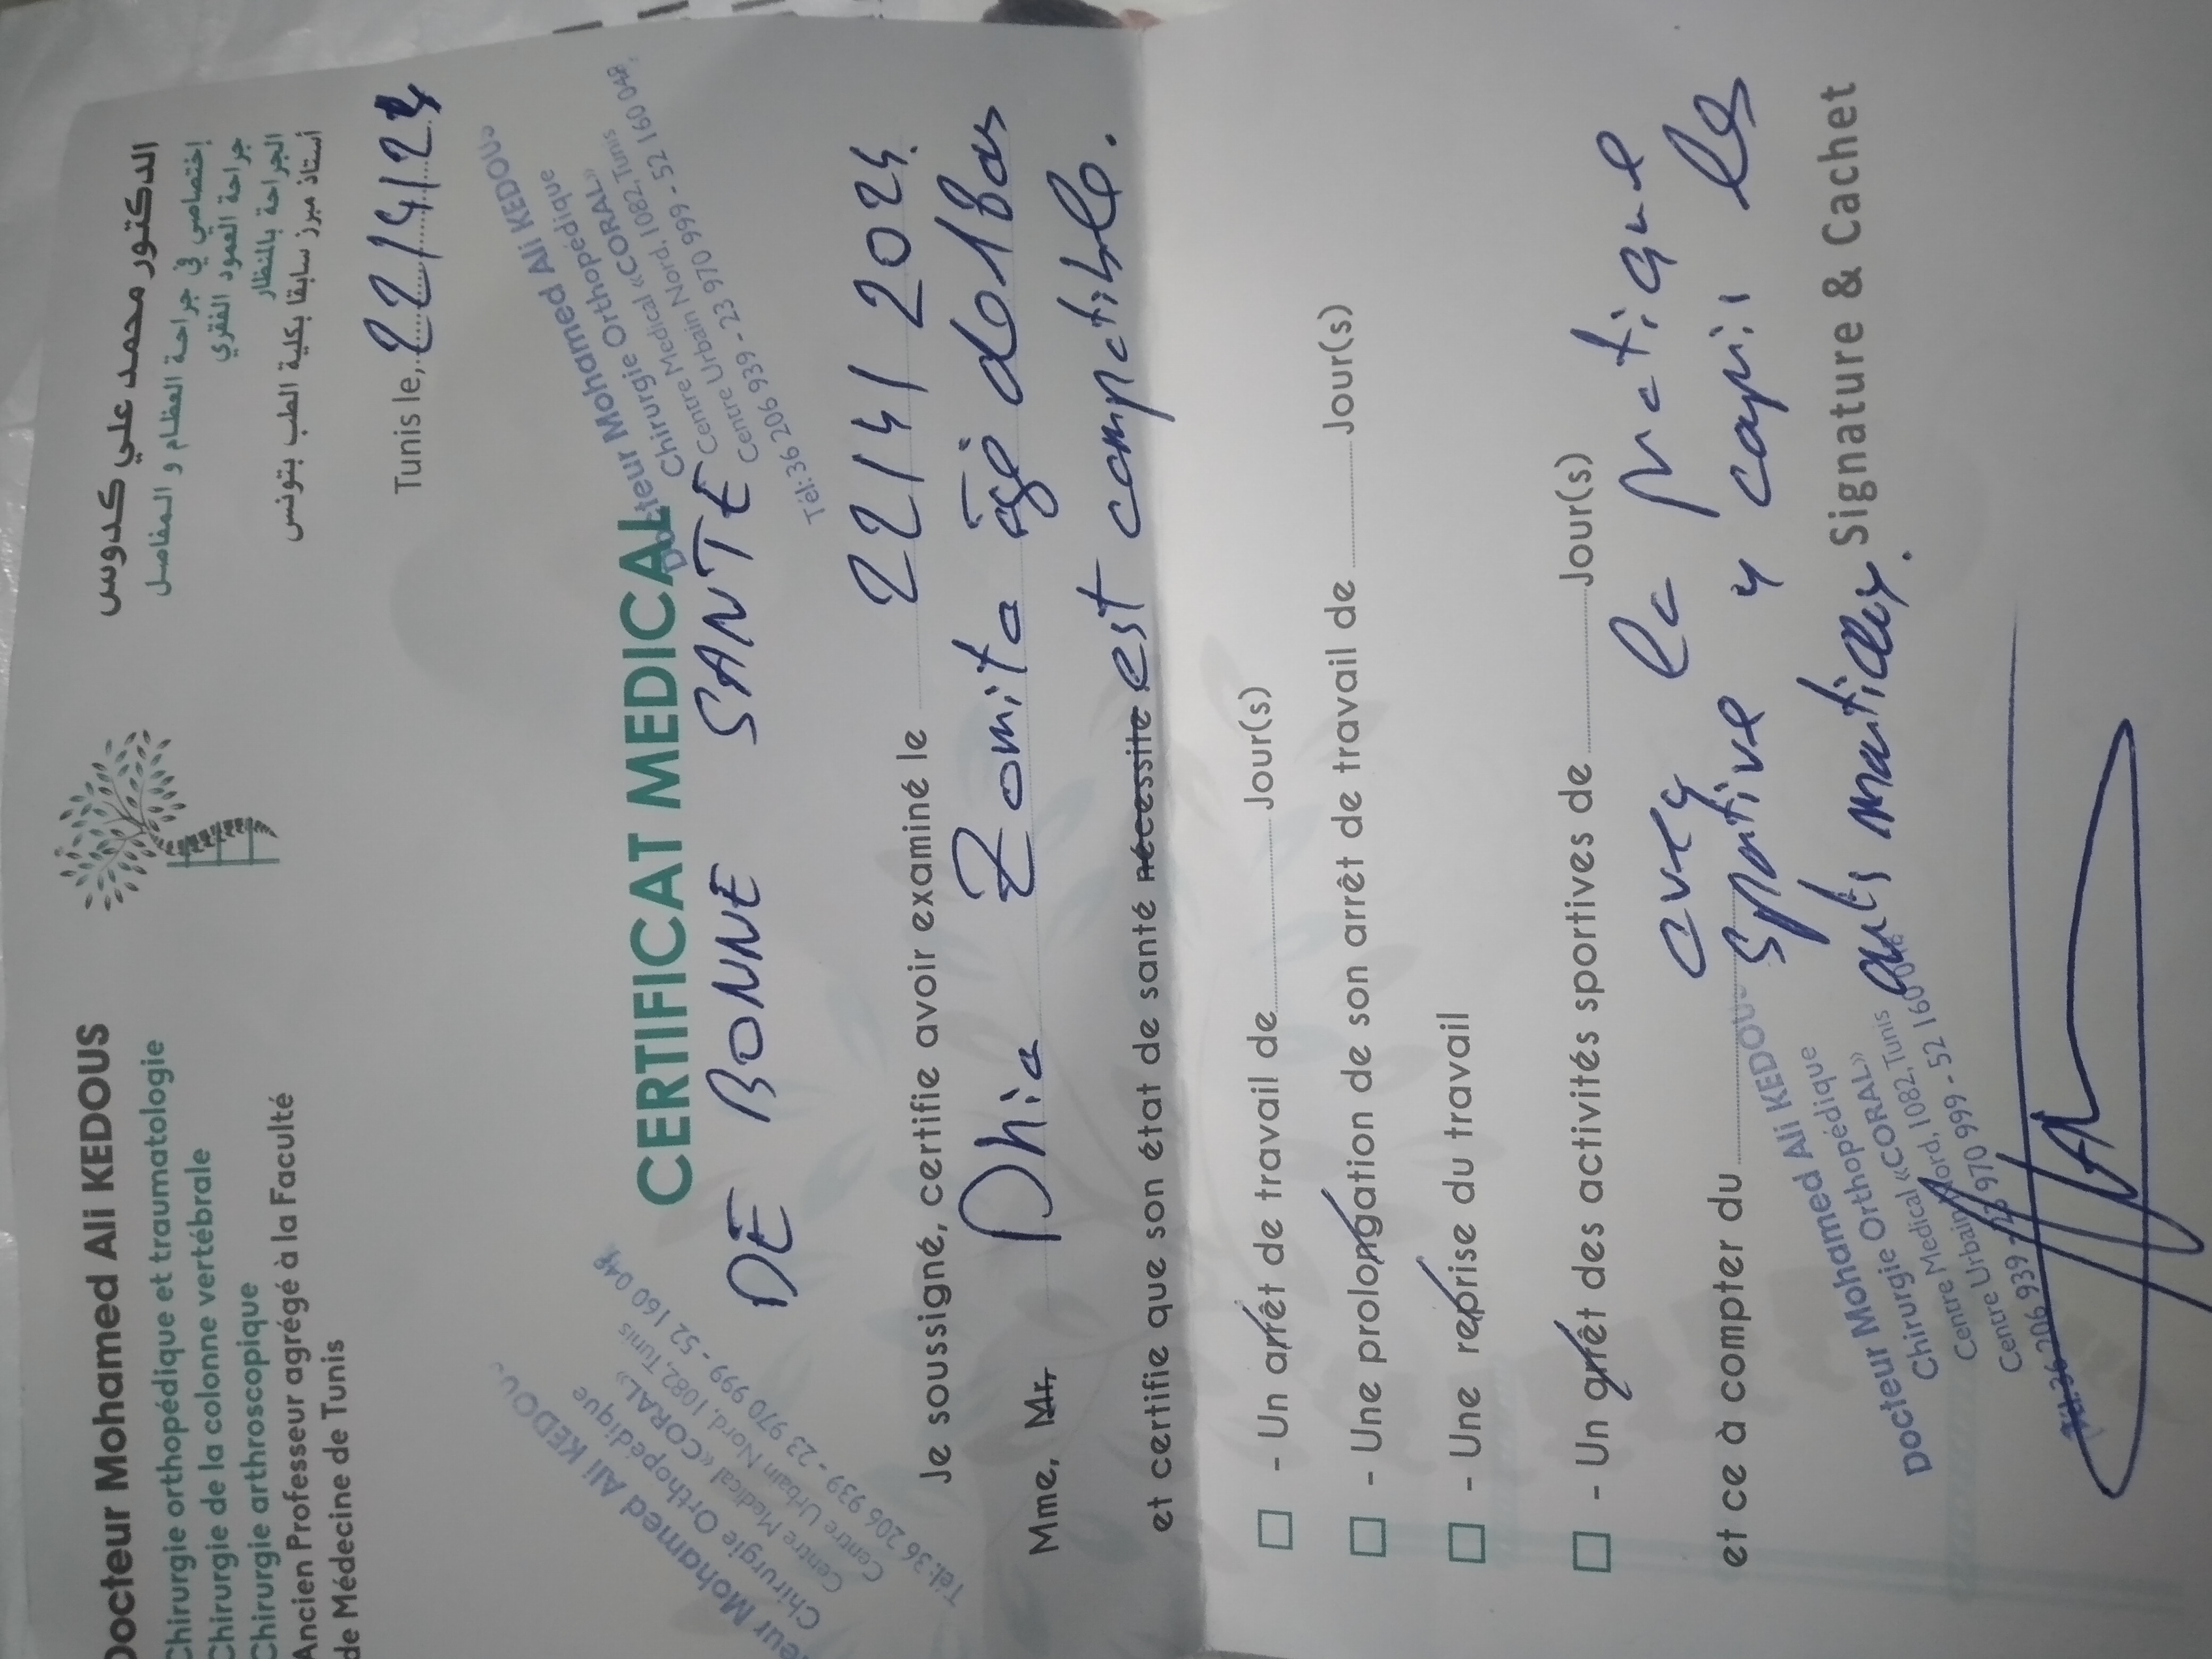 Docteur Mohamed Ali KEDOUS
Chirurgie orthopédique et traumatologie
Chirurgie de la colonne vertébrale
Chirurgie arthroscopique
Ancien Professeur agrégé à la Faculté
de Médecine de Tunis
الدكتور محمد علي كدوس
إختصاصي في جراحة العظام و المفاصل
جراحة العمود الفقري
الجراحة بالمنظار
أستاذ مبرز سابقا بكلية الطب بتونس
Tunis le, 22/4/24
Docteur Mohamed Ali KEDOUS
Chirurgie Orthopédique
Centre Medical «CORAL»
Centre Urbain Nord, 1082, Tunis
Tél: 36 206 939 - 23 970 999 - 52 160 048
eur Mohamed Ali KEDOUS
Chirurgie Orthopédique
Centre Medical «CORAL»
Centre Urbain Nord, 1082, Tunis
Tél: 36 206 939 - 23 970 999 - 52 160 048
CERTIFICAT MEDICAL
DE BONNE SANTE
Je soussigné, certifie avoir examiné le 22/4/2024
Mme, Mr, Dhia Zomita âgé de 18 ans
et certifie que son état de santé nécessite est compatible.
- Un arrêt de travail de Jour(s)
- Une prolongation de son arrêt de travail de Jour(s)
- Une reprise du travail
- Un arrêt des activités sportives de Jour(s)
avec la pratique
et ce à compter du sportive y compris les
arts martiaux.
Signature & Cachet
Docteur Mohamed Ali KEDOUS
Chirurgie Orthopédique
Centre Medical «CORAL»
Centre Urbain Nord, 1082, Tunis
Tél: 36 206 939 - 23 970 999 - 52 160 048